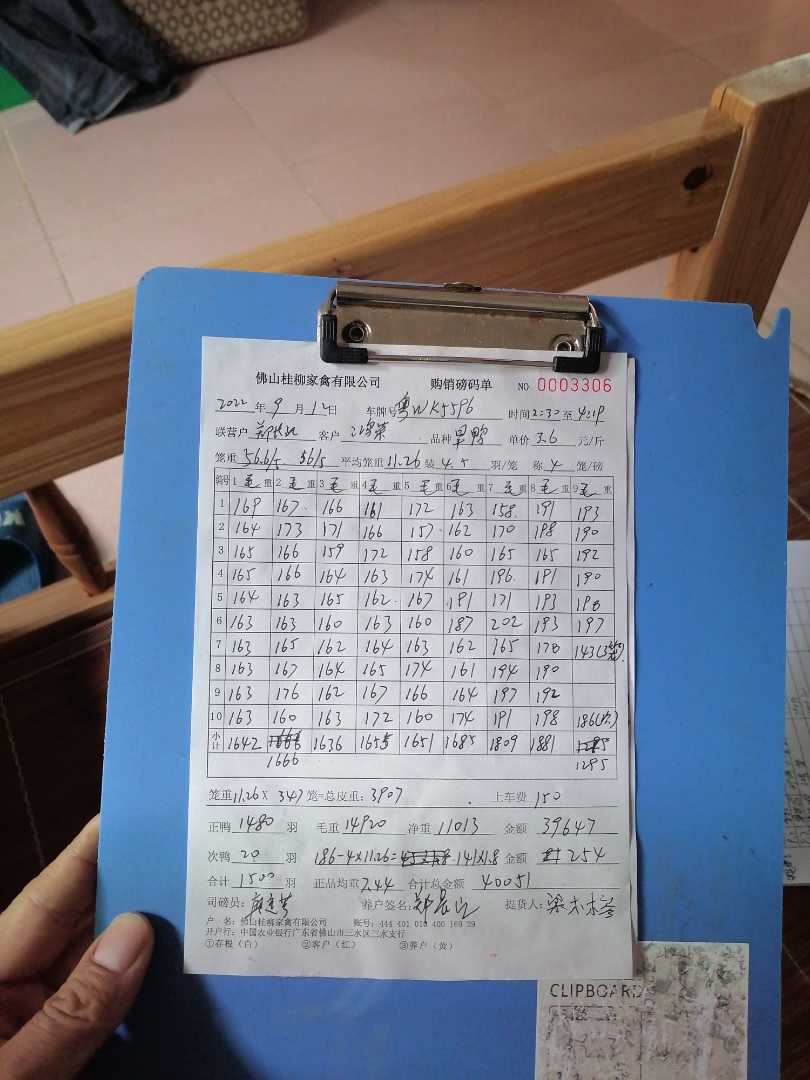 佛山桂柳家禽有限公司 购销磅码单 NO 0003306
2022 年 9 月 12 日 车牌号 粤WK5596 时间 2:30 至 4:19
联营户 客户 品种 单价 3.6 元/斤
笼重 56.6/5 56/5 平均笼重 11.26 装 4.5 羽/笼 称 4 笼/磅
编号 1 毛 重 2 毛 重 3 毛 重 4 毛 重 5 毛 重 6 毛 重 7 毛 重 8 毛 重 9 毛 重
1 169 167 166 161 172 163 158 191 193
2 164 173 171 166 157 162 170 198 190
3 165 166 159 172 158 160 165 165 192
4 165 166 164 163 174 161 196 191 190
5 164 163 165 162 167 191 171 193 198
6 163 163 160 163 160 187 202 193 197
7 163 165 162 164 163 162 165 178 143(3笼)
8 163 167 164 165 174 161 194 190
9 163 176 162 167 166 164 197 192
10 163 160 163 172 160 174 191 198 186
小计 1642 1636 1655 1651 1685 1809 1881
1666 1295
笼重 11.26 × 347 笼=总皮重: 3907 上车费 150
正鸭 1480 羽 毛重 14920 净重 11013 金额 39647
次鸭 20 羽 186-4×11.26= 141×1.8 金额 254
合计 1500 羽 正品均重 7.44 合计总金额 40051
司磅员: 养户签名: 提货人:
户 名: 佛山桂柳家禽有限公司 账号: 444 401 010 400 169 29
开户行: 中国农业银行广东省佛山市三水区三水支行
①存根（白） ②客户（红） ③养户（黄）
CLIPBOARD